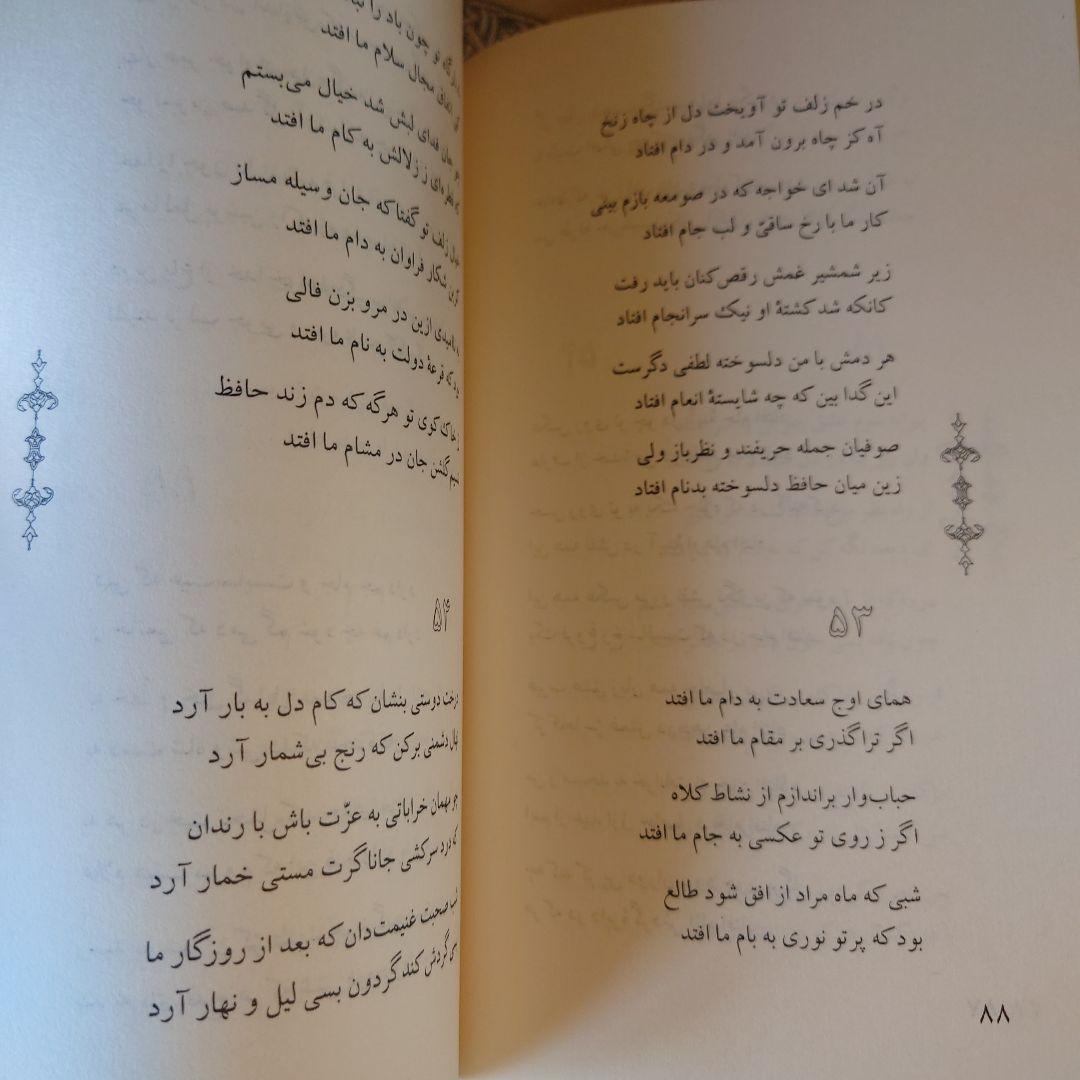 در خم زلف تو آویخت دل از چاه زنخ
آه کز چاه برون آمد و در دام افتاد
آن شد ای خواجه که در صومعه بازم بینی
کار ما با رخ ساقیّ و لب جام افتاد
زیر شمشیر غمش رقص‌کنان باید رفت
کانکه شد کشتهٔ او نیک سرانجام افتاد
هر دمش با من دلسوخته لطفی دگرست
این گدا بین که چه شایستهٔ انعام افتاد
صوفیان جمله حریفند و نظرباز ولی
زین میان حافظ دلسوخته بدنام افتاد
۵۳
همای اوج سعادت به دام ما افتد
اگر تراگذری بر مقام ما افتد
حباب‌وار براندازم از نشاط کلاه
اگر ز روی تو عکسی به جام ما افتد
شبی که ماه مراد از افق شود طالع
بود که پرتو نوری به بام ما افتد
۸۸
تو چون باد را
مجال سلام ما افتد
جان فدای لبش شد خیال می‌بستم
ز زلالش به کام ما افتد
زلف تو گفتا که جان وسیله مساز
شکار فراوان به دام ما افتد
ازین در مرو بزن فالی
که قرعهٔ دولت به نام ما افتد
خاک کوی تو هرگه که دم زند حافظ
نسیم گلشن جان در مشام ما افتد
۵۴
درخت دوستی بنشان که کام دل به بار آرد
دشمنی برکن که رنج بی‌شمار آرد
مهمان خراباتی به عزّت باش با رندان
که درد سرکشی جانا گرت مستی خمار آرد
شب صحبت غنیمت‌دان که بعد از روزگار ما
گردش کند گردون بسی لیل و نهار آرد